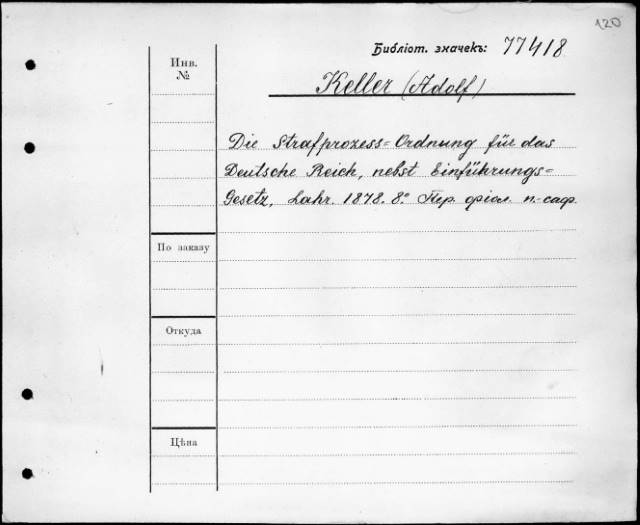 120
Библіот. значекъ: 77418
Инв.
№
Keller (Adolf)
Die Strafprozess=Ordnung für das
Deutsche Reich, nebst Einführungs=
Gesetz, Lahr. 1878. 8º Пер. фіол. п.-саф.
По заказу
Откуда
Цѣна